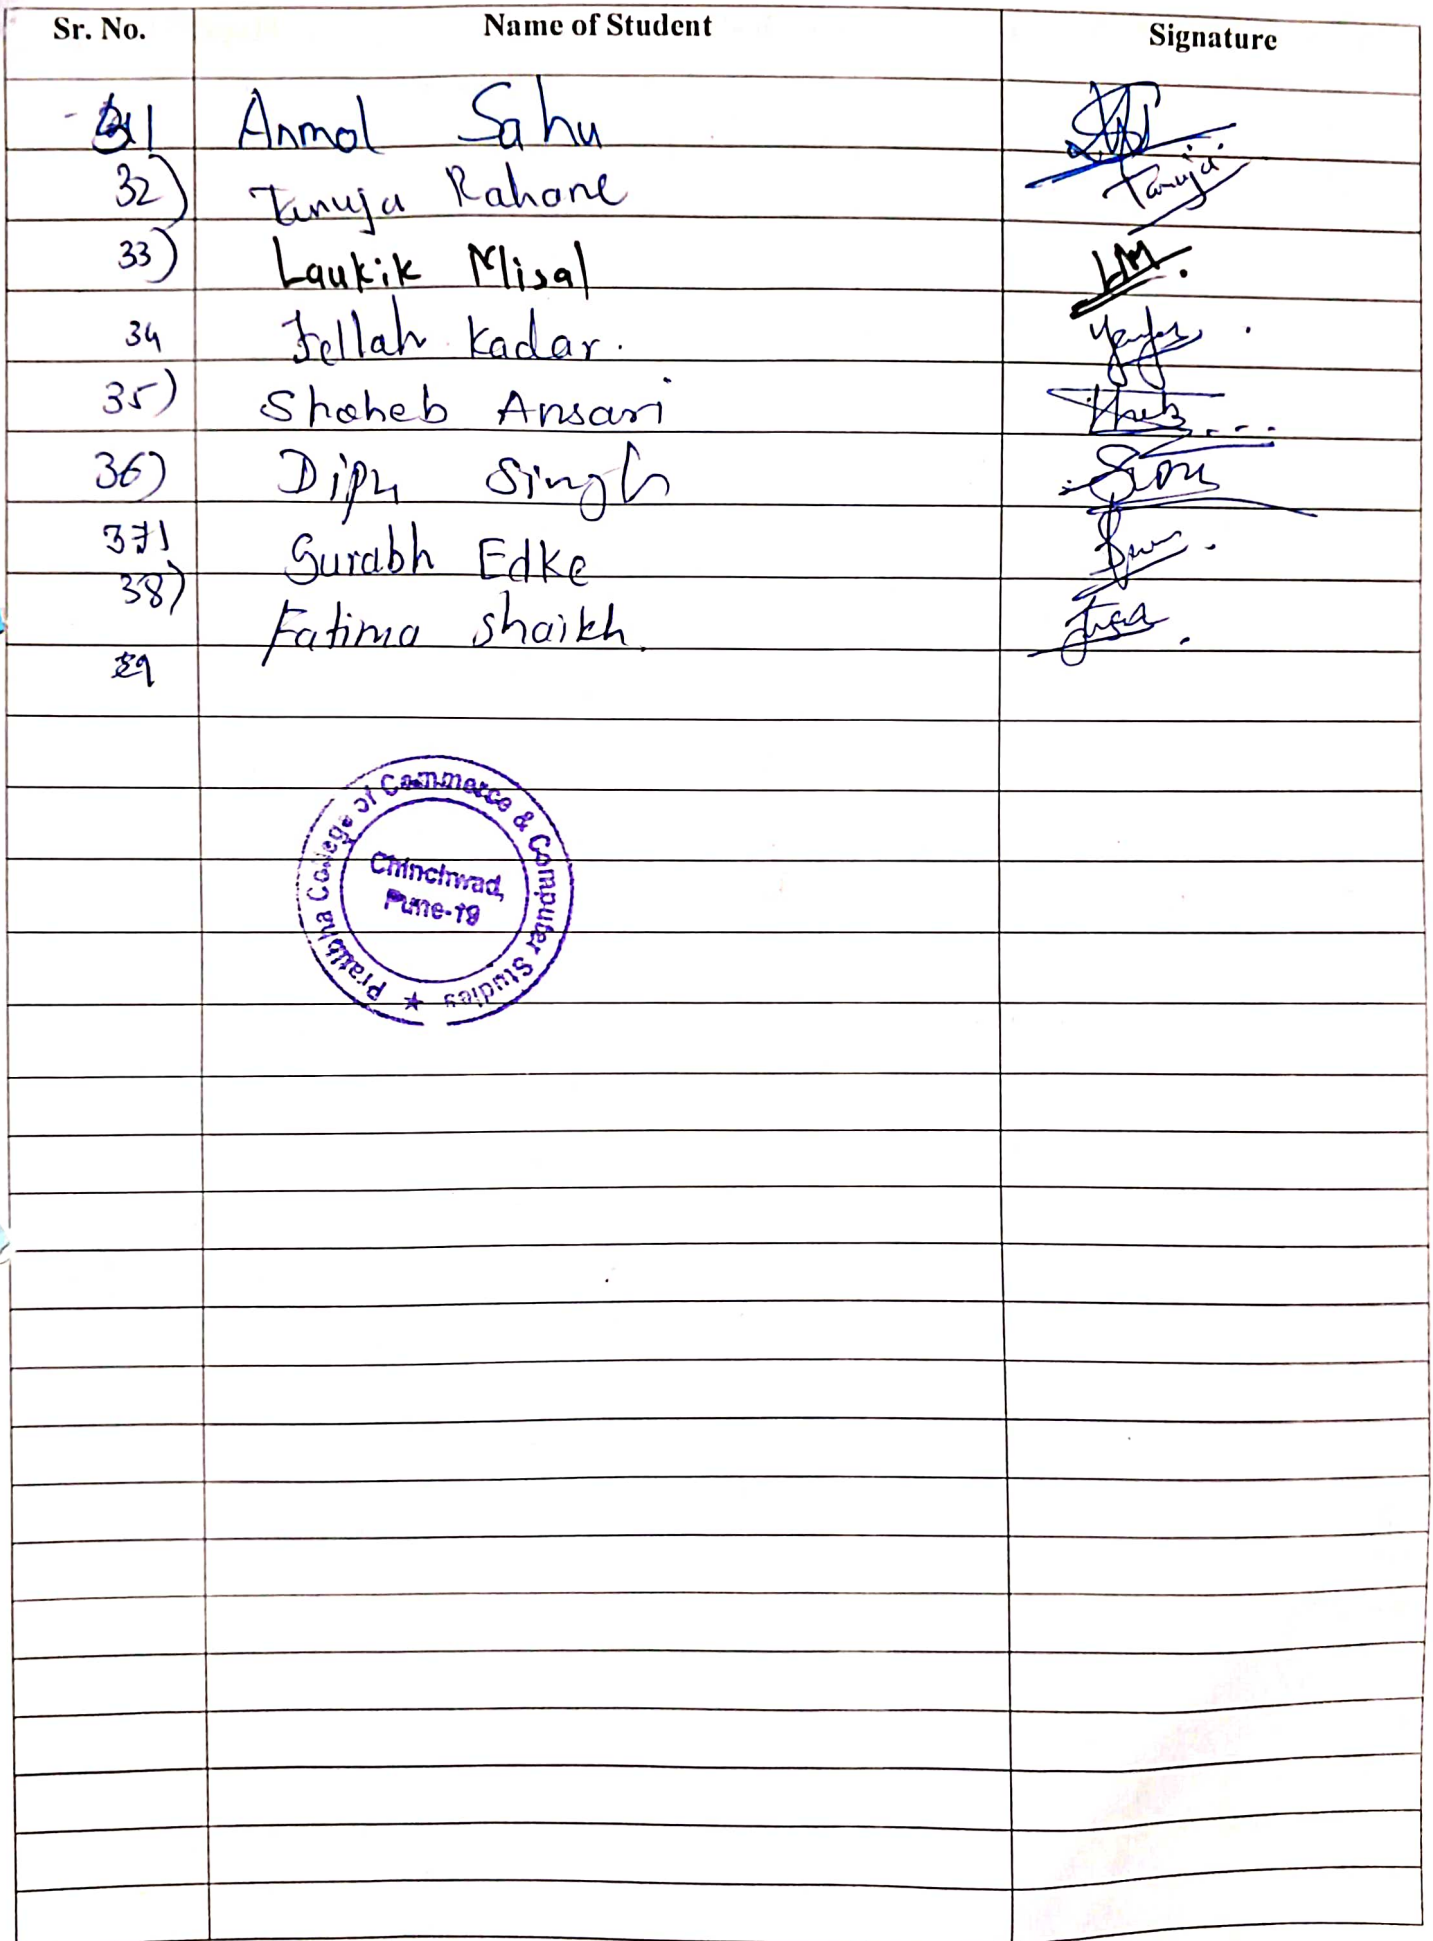 Sr. No. Name of Student Signature
31 Anmol Sahu
32) Tanuja Rahane Tanuja
33) Laukik Misal LM
34 Jellah Kadar.
35) Shoheb Ansari
36) Dipu Singh
37) Surabh Edke
38) Fatima Shaikh.
39
Pratibha College of Commerce & Computer Studies
Chinchwad,
Pune-19